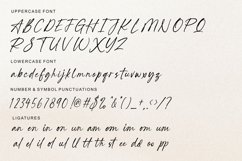 UPPERCASE FONT
ABCDEFGHIJKLMNOPQ
RSTUVWXYZ
LOWERCASE FONT
abcdefghijklmnopqrstuvwxyz
NUMBER & SYMBOL PUNCTUATIONS
1234567890
LIGATURES
an en in on un am om im um um
al el il ol ul ll tt th st ee dd oo pp